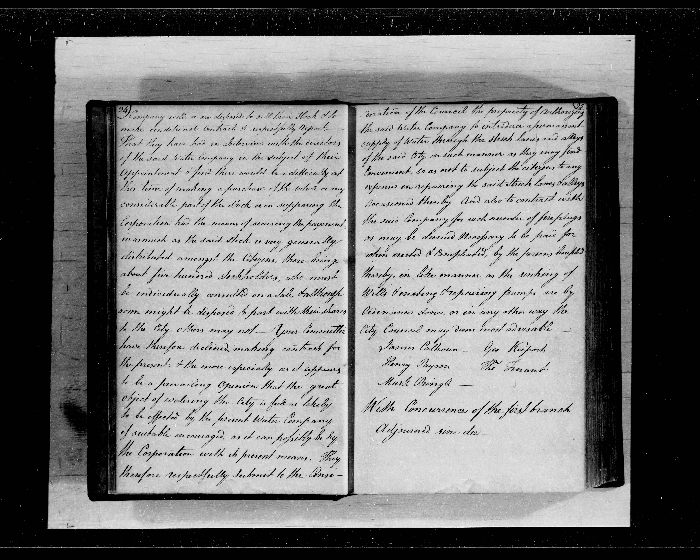 Company and are disposed to sell their Stock & to
make conditional contracts &c respectfully report
That they have had an interview with the directors
of the said Water Company on the subject of their
appointment & find there would be a difficulty at
this time of making a purchase of the whole or any
considerable part of the Stock even supposing the
Corporation had the means of securing the payment
inasmuch as the said Stock is very generally
distributed amongst the Citizens, there being
about five hundred Stockholders, who must
be individually consulted on a Sale, & although
some might be disposed to part with their shares
to the City others may not — Your Committee
have therefore declined making contracts for
the present, & the more especially as it appears
to be a prevailing Opinion that the great
object of watering the City is full as likely
to be effected by the present Water Company
if suitably encouraged, as it can possibly be by
the Corporation with its present means. They
therefore respectfully submit to the Consi-
deration of the Council the propriety of authorizing
the said Water Company to introduce a permanent
supply of Water through the Streets lanes and alleys
of the said City in such manner as they may find
Convenient, so as not to subject the citizens to any
expense in repairing the said Streets lanes & alleys
occasioned thereby. And also to contract with
the said Company for such number of fire plugs
as may be deemed necessary to be paid for
when erected & completed, by the persons benefited
thereby, in like manner as the sinking of
Wells & making & repairing pumps are by
Ordinance done, or in any other way the
City Council may deem most adviseable —
James Calhoun — Geo Keiport
Henry Payson
Mark Pringle —
With Concurrence of the first branch
Adjourned sine die